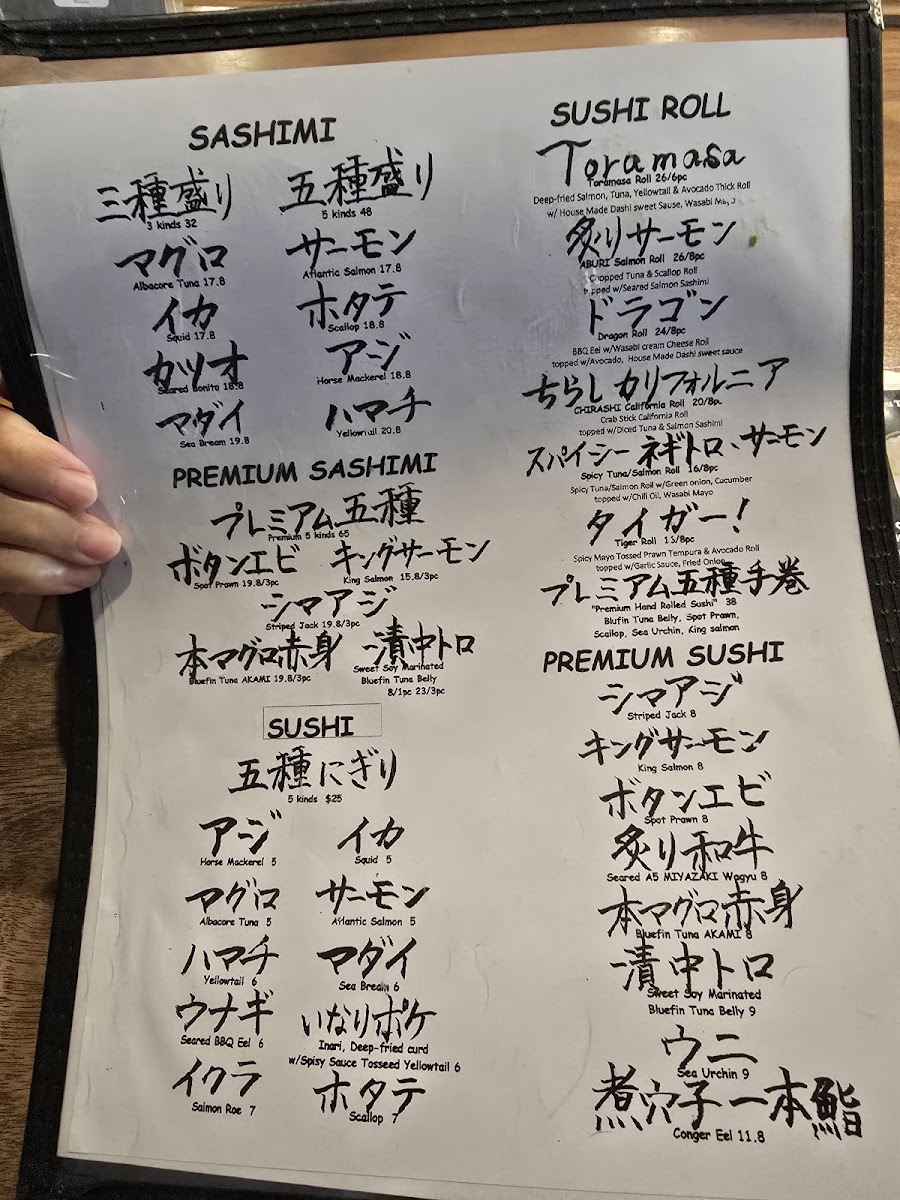 SASHIMI
三種盛り
3 kinds 32
五種盛り
5 kinds 48
マグロ
Albacore Tuna 17.8
サーモン
Atlantic Salmon 17.8
イカ
Squid 17.8
ホタテ
Scallop 18.8
カツオ
Seared Bonito 18.8
アジ
Horse Mackerel 18.8
マダイ
Sea Bream 19.8
ハマチ
Yellowtail 20.8
PREMIUM SASHIMI
プレミアム五種
Premium 5 kinds 65
ボタンエビ
Spot Prawn 19.8/3pc
キングサーモン
King Salmon 15.8/3pc
シマアジ
Striped Jack 19.8/3pc
本マグロ赤身
Bluefin Tuna AKAMI 19.8/3pc
漬中トロ
Sweet Soy Marinated
Bluefin Tuna Belly
8/1pc 23/3pc
SUSHI
五種にぎり
5 kinds $25
アジ
Horse Mackerel 5
イカ
Squid 5
マグロ
Albacore Tuna 5
サーモン
Atlantic Salmon 5
ハマチ
Yellowtail 6
マダイ
Sea Bream 6
ウナギ
Seared BBQ Eel 6
いなりポケ
Inari, Deep-fried curd
w/Spisy Sauce Tosseed Yellowtail 6
イクラ
Salmon Roe 7
ホタテ
Scallop 7
SUSHI ROLL
Toramasa
Toramasa Roll 26/6pc
Deep-fried Salmon, Tuna, Yellowtail & Avocado Thick Roll
w/ House Made Dashi sweet Sause, Wasabi
炙りサーモン
ABURI Salmon Roll 26/8pc
Chopped Tuna & Scallop Roll
topped w/Seared Salmon Sashimi
ドラゴン
Dragon Roll 24/8pc
BBQ Eel w/Wasabi cream Cheese Roll
topped w/Avocado, House Made Dashi sweet sauce
ちらしカリフォルニア
CHIRASHI California Roll 20/8pc
Crab Stick California Roll
topped w/Diced Tuna & Salmon Sashimi
スパイシーネギトロ、サーモン
Spicy Tuna/Salmon Roll 16/8pc
Spicy Tuna/Salmon Roll w/Green onion, Cucumber
topped w/Chili Oil, Wasabi Mayo
タイガー!
Tiger Roll
Spicy Mayo Tossed Prawn Tempura & Avocado Roll
topped w/Garlic Sauce, Fried Onion
プレミアム五種手巻
"Premium Hand Rolled Sushi" 38
Blufin Tuna Belly, Spot Prawn,
Scallop, Sea Urchin, King salmon
PREMIUM SUSHI
シマアジ
Striped Jack 8
キングサーモン
King Salmon 8
ボタンエビ
Spot Prawn 8
炙り和牛
Seared A5 MIYAZAKI Wagyu 8
本マグロ赤身
Bluefin Tuna AKAMI 8
漬中トロ
Sweet Soy Marinated
Bluefin Tuna Belly 9
ウニ
Sea Urchin 9
煮穴子一本鮨
Conger Eel 11.8